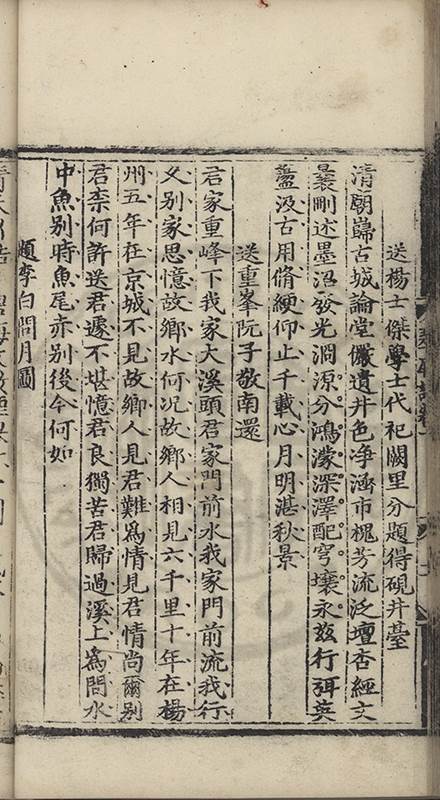 送楊士傑學士代祀闕里分題得硯井臺
清廟巋古城論堂儼遺井色净涵市槐芳流泛壇杏經文
曩刪述墨沼發光澗源分鴻濛深澤配穹壤永兹行弭英
藎汲古用脩綆仰止千載心月明湛秋景
送重峯阮子敬南還
君家重峰下我家大溪頭君家門前水我家門前流我行
久别家思憶故鄉水何况故鄉人相見六千里十年在楊
州五年在京城不見故鄉人見君難爲情見君情尚爾别
君柰何許送君遽不堪憶君良獨苦君歸過溪上爲問水
中魚别時魚尾赤别後今何如
題李白問月圖